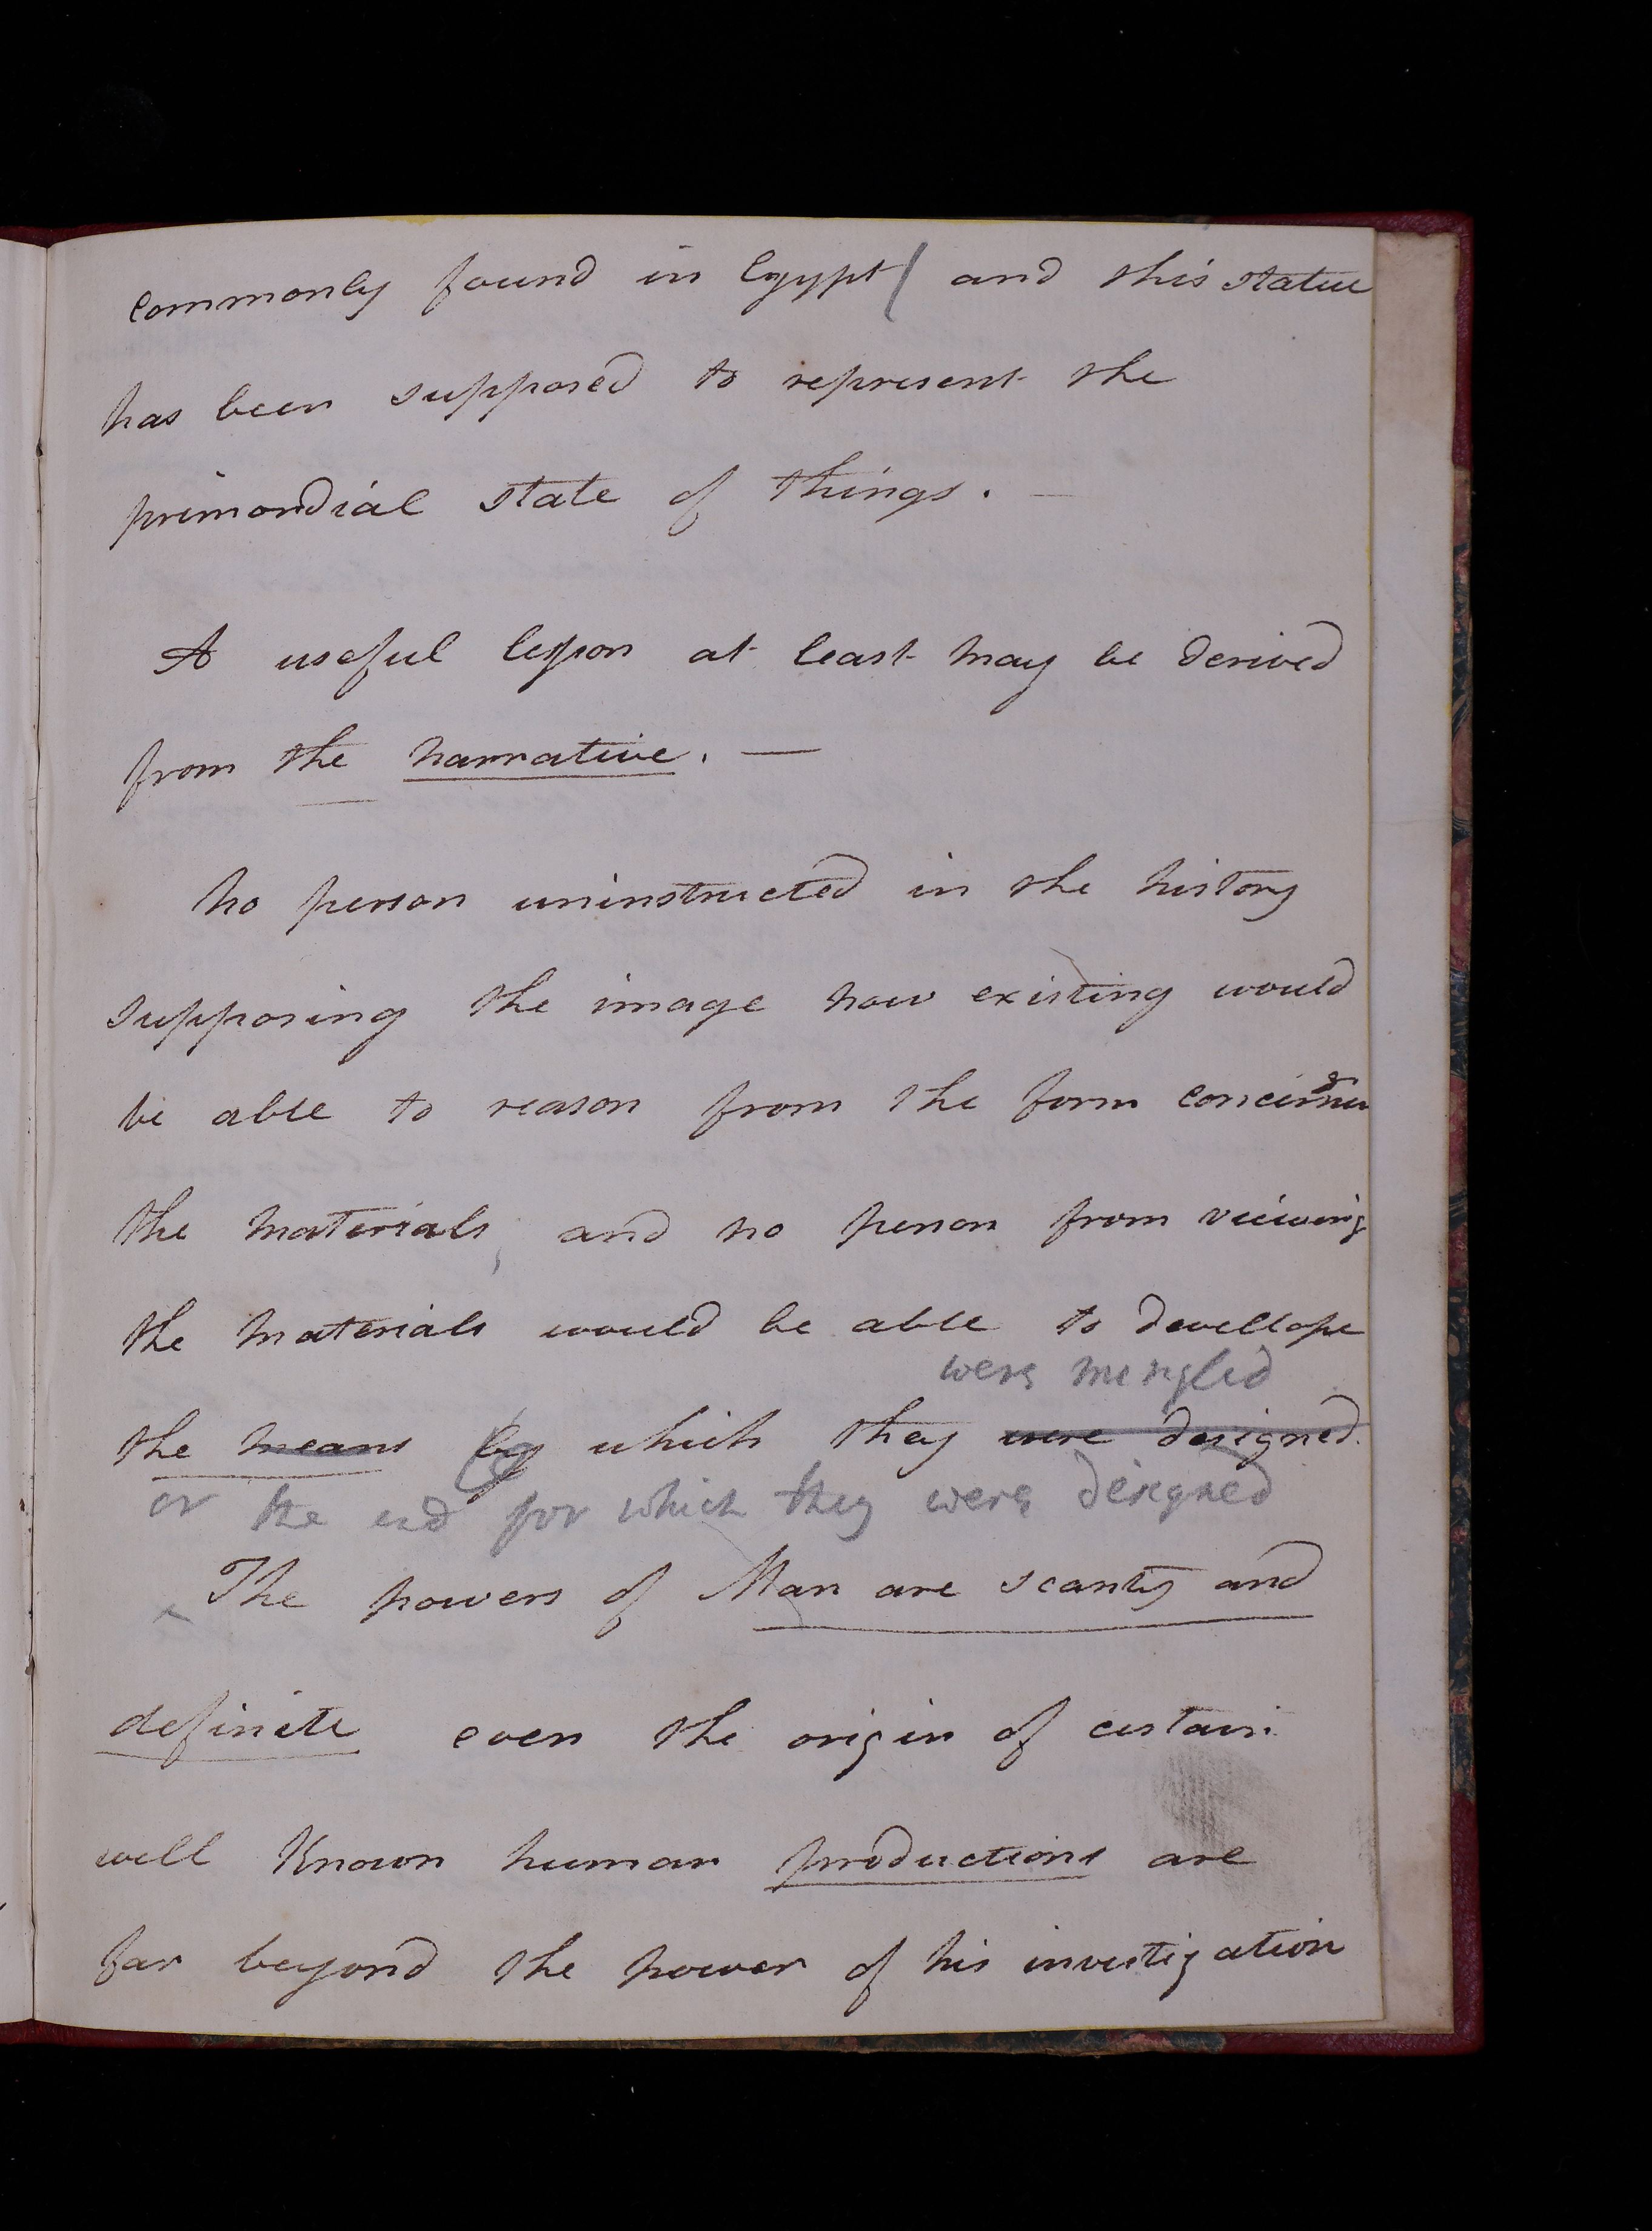 commonly found in Egypt/ and this statue
has been supposed to represent the
primordial state of things. —
A useful lesson at least may be derived
from the narrative. —
No person uninstructed in the history
supposing the image now existing would
be able to reason from the form concerning
the materials, and no person from viewing
the materials would be able to devellope
were mingled
the means by which they were designed.
or the end for which they were designed
The powers of Man are scanty and
definite even the origin of certain
well Known human productions are
far beyond the power of his investigation